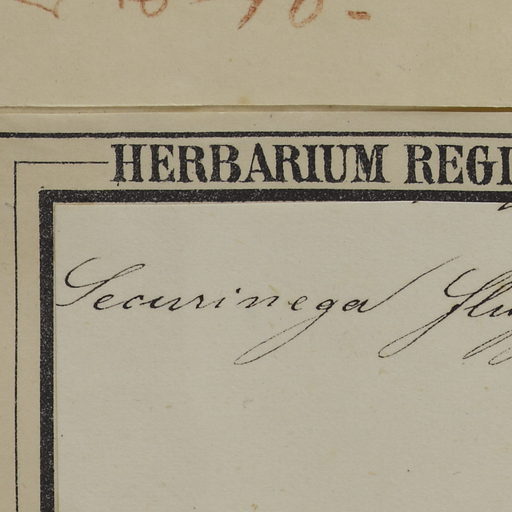 HERBARIUM REGI
Securinega flu